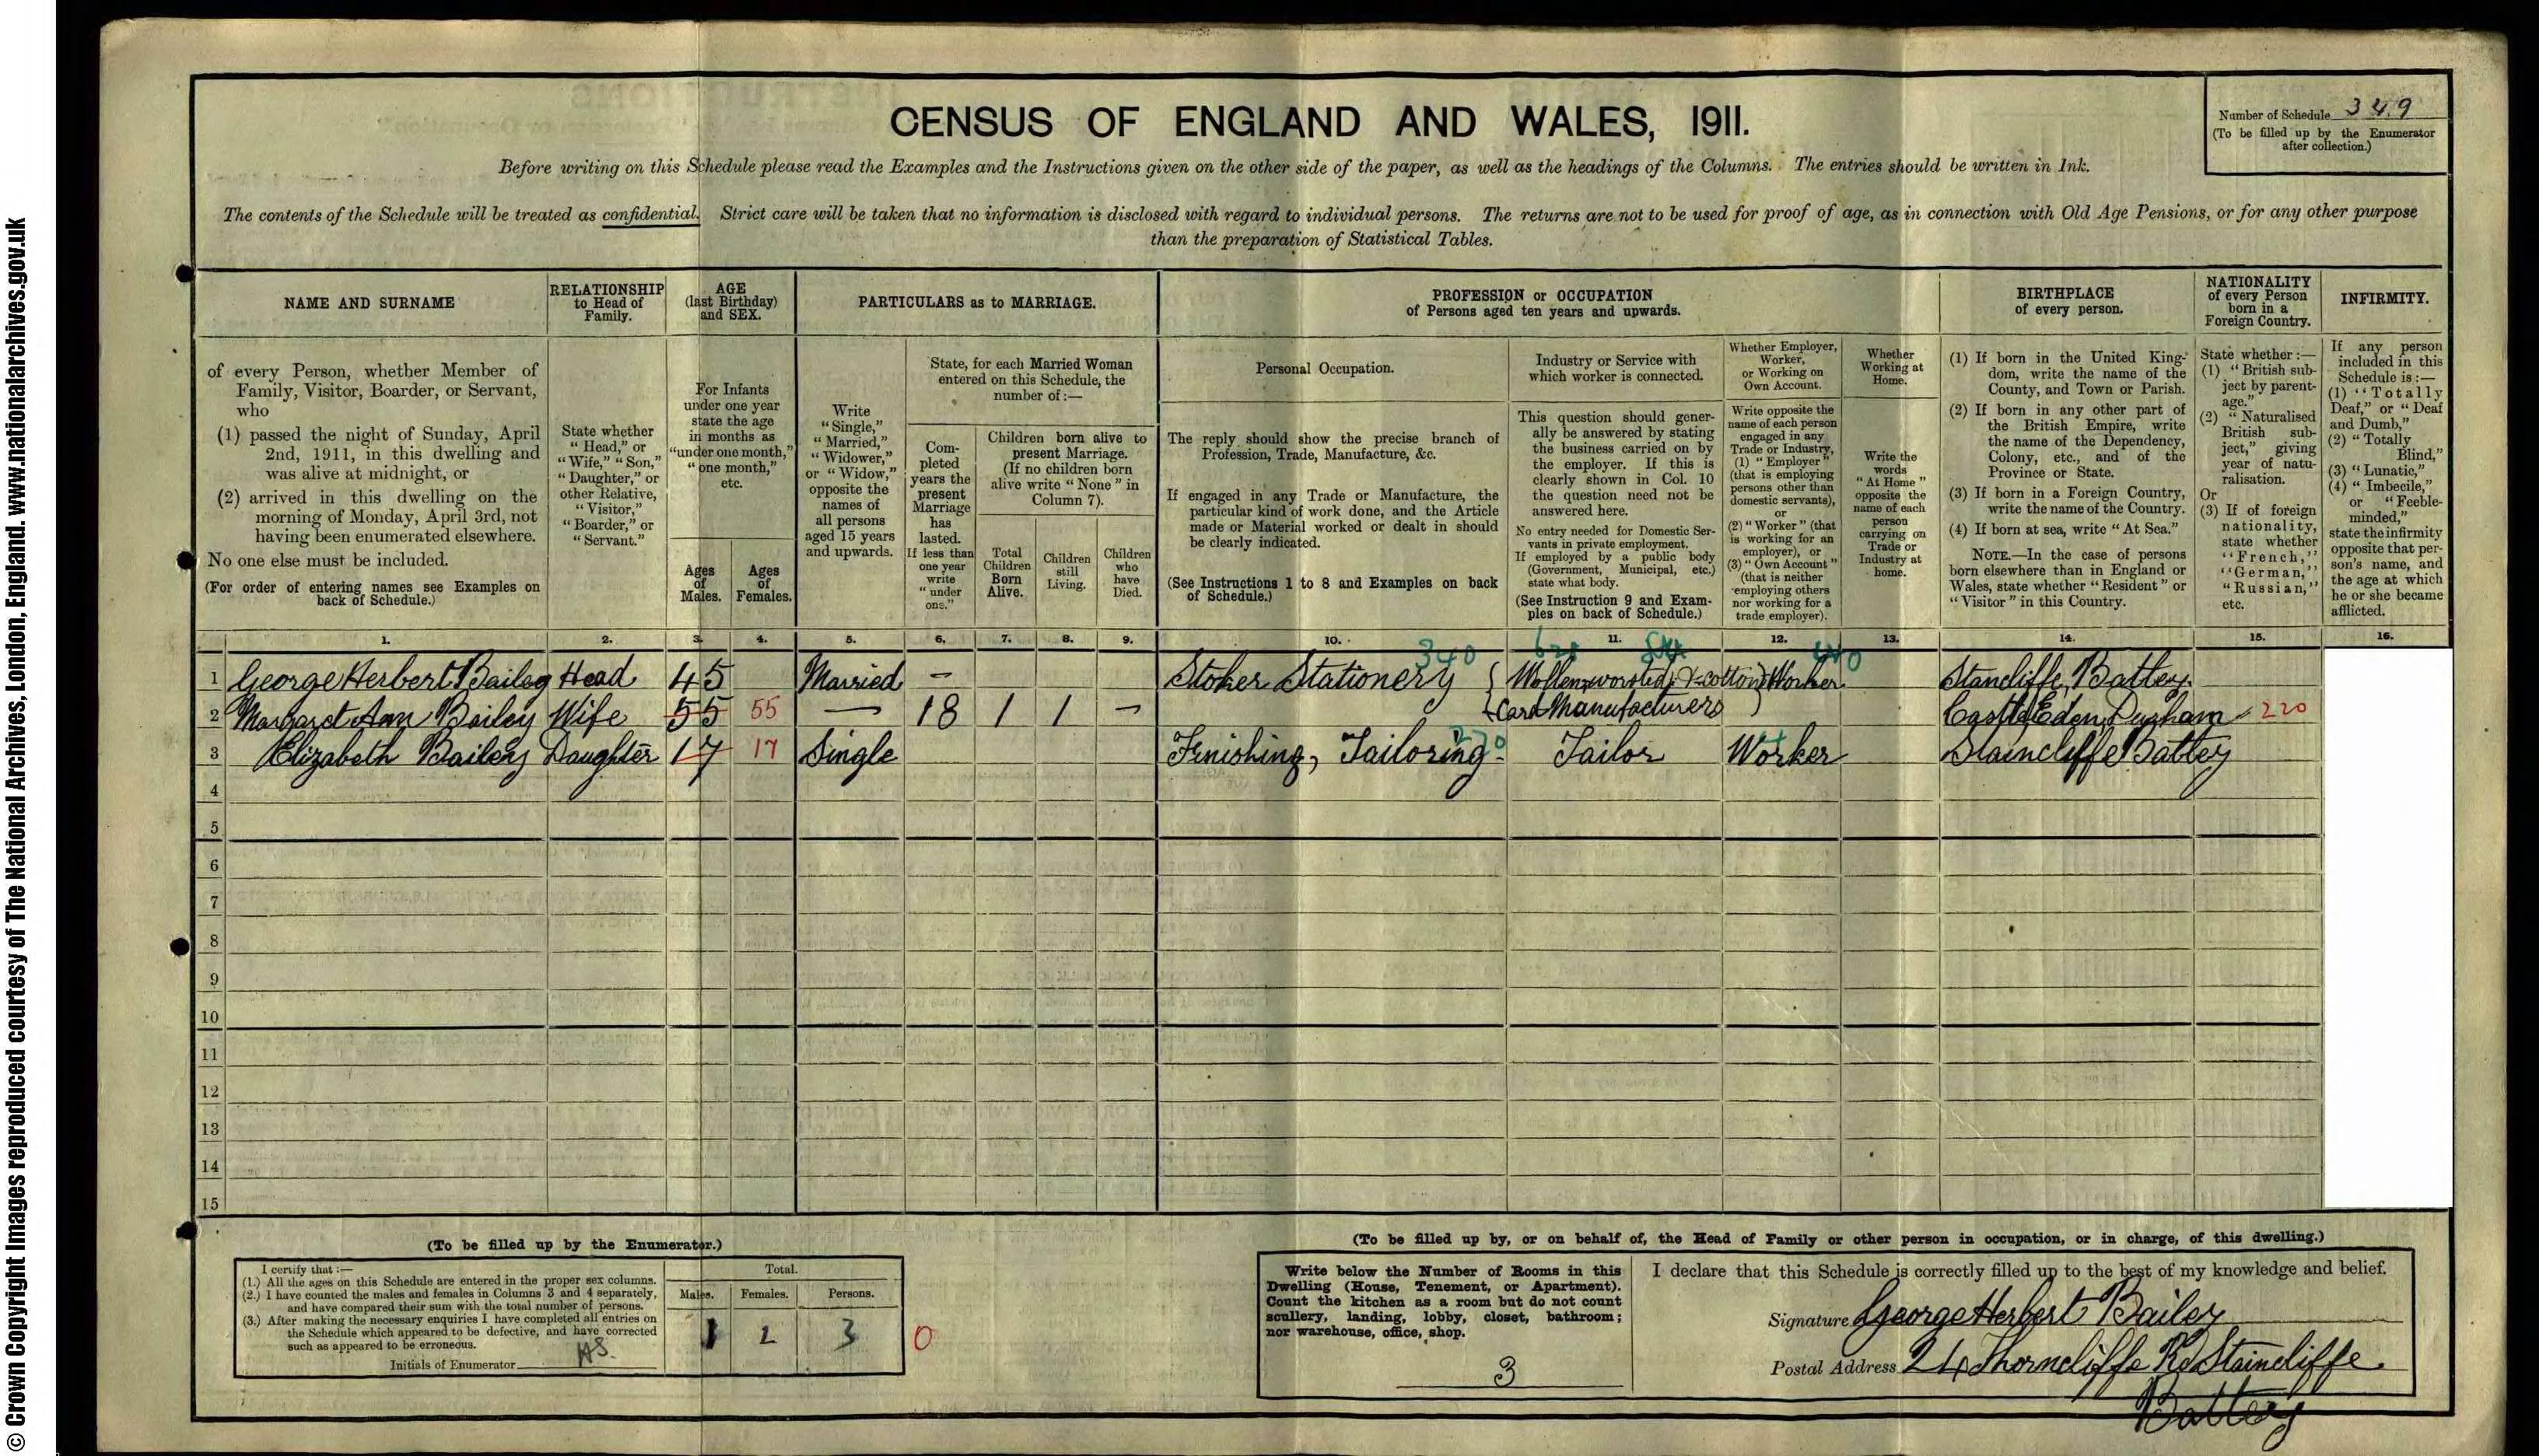 © Crown Copyright Images reproduced courtesy of The National Archives, London, England. www.nationalarchives.gov.uk
CENSUS OF ENGLAND AND WALES, 1911.
Number of Schedule 349
(To be filled up by the Enumerator
after collection.)
Before writing on this Schedule please read the Examples and the Instructions given on the other side of the paper, as well as the headings of the Columns. The entries should be written in Ink.
The contents of the Schedule will be treated as confidential. Strict care will be taken that no information is disclosed with regard to individual persons. The returns are not to be used for proof of age, as in connection with Old Age Pensions, or for any other purpose
than the preparation of Statistical Tables.
NAME AND SURNAME
RELATIONSHIP
to Head of
Family.
AGE
(last Birthday)
and SEX.
PARTICULARS as to MARRIAGE.
PROFESSION or OCCUPATION
of Persons aged ten years and upwards.
BIRTHPLACE
of every person.
NATIONALITY
of every Person
born in a
Foreign Country.
INFIRMITY.
of every Person, whether Member of
Family, Visitor, Boarder, or Servant,
who
(1) passed the night of Sunday, April
2nd, 1911, in this dwelling and
was alive at midnight, or
(2) arrived in this dwelling on the
morning of Monday, April 3rd, not
having been enumerated elsewhere.
No one else must be included.
(For order of entering names see Examples on
back of Schedule.)
State whether
"Head," or
"Wife," "Son,"
"Daughter," or
other Relative,
"Visitor,"
"Boarder," or
"Servant."
For Infants
under one year
state the age
in months as
"under one month,"
"one month,"
etc.
Ages
of
Males.
Ages
of
Females.
Write
"Single,"
"Married,"
"Widower,"
or "Widow,"
opposite the
names of
all persons
aged 15 years
and upwards.
State, for each Married Woman
entered on this Schedule, the
number of :—
Com-
pleted
years the
present
Marriage
has
lasted.
If less than
one year
write
"under
one."
Children born alive to
present Marriage.
(If no children born
alive write "None" in
Column 7).
Total
Children
Born
Alive.
Children
still
Living.
Children
who
have
Died.
Personal Occupation.
The reply should show the precise branch of
Profession, Trade, Manufacture, &c.
If engaged in any Trade or Manufacture, the
particular kind of work done, and the Article
made or Material worked or dealt in should
be clearly indicated.
(See Instructions 1 to 8 and Examples on back
of Schedule.)
Industry or Service with
which worker is connected.
This question should gener-
ally be answered by stating
the business carried on by
the employer. If this is
clearly shown in Col. 10
the question need not be
answered here.
No entry needed for Domestic Ser-
vants in private employment.
If employed by a public body
(Government, Municipal, etc.)
state what body.
(See Instruction 9 and Exam-
ples on back of Schedule.)
Whether Employer,
Worker,
or Working on
Own Account.
Write opposite the
name of each person
engaged in any
Trade or Industry,
(1) "Employer"
(that is employing
persons other than
domestic servants),
or
(2) "Worker" (that
is working for an
employer), or
(3) "Own Account"
(that is neither
employing others
nor working for a
trade employer).
Whether
Working at
Home.
Write the
words
"At Home"
opposite the
name of each
person
carrying on
Trade or
Industry at
home.
(1) If born in the United King-
dom, write the name of the
County, and Town or Parish.
(2) If born in any other part of
the British Empire, write
the name of the Dependency,
Colony, etc., and of the
Province or State.
(3) If born in a Foreign Country,
write the name of the Country.
(4) If born at sea, write "At Sea."
NOTE.—In the case of persons
born elsewhere than in England or
Wales, state whether "Resident" or
"Visitor" in this Country.
State whether :—
(1) "British sub-
ject by parent-
age."
(2) "Naturalised
British sub-
ject," giving
year of natu-
ralisation.
Or
(3) If of foreign
nationality,
state whether
"French,"
"German,"
"Russian,"
etc.
If any person
included in this
Schedule is :—
(1) "Totally
Deaf," or "Deaf
and Dumb,"
(2) "Totally
Blind,"
(3) "Lunatic,"
(4) "Imbecile,"
or "Feeble-
minded,"
state the infirmity
opposite that per-
son's name, and
the age at which
he or she became
afflicted.
1. 2. 3. 4. 5. 6. 7. 8. 9. 10. 11. 12. 13. 14. 15. 16.
340
1 George Herbert Bailey Head 45 Married – Stoker Stationery Wollen, worsted, & cotton Worker Stancliffe, Batley.
2 Margaret Ann Bailey Wife 55 55 — 18 1 1 – Card Manufacturers Castle Eden, Durham 220
3 Elizabeth Bailey Daughter 17 17 Single Finishing, Tailoring. Tailor Worker Staincliffe Batley
4
5
6
7
8
9
10
11
12
13
14
15
(To be filled up by the Enumerator.)
I certify that :—
(1.) All the ages on this Schedule are entered in the proper sex columns.
(2.) I have counted the males and females in Columns 3 and 4 separately,
and have compared their sum with the total number of persons.
(3.) After making the necessary enquiries I have completed all entries on
the Schedule which appeared to be defective, and have corrected
such as appeared to be erroneous.
Initials of Enumerator HS.
Total.
Males. Females. Persons.
1 2 3 0
(To be filled up by, or on behalf of, the Head of Family or other person in occupation, or in charge, of this dwelling.)
Write below the Number of Rooms in this
Dwelling (House, Tenement, or Apartment).
Count the kitchen as a room but do not count
scullery, landing, lobby, closet, bathroom;
nor warehouse, office, shop.
3
I declare that this Schedule is correctly filled up to the best of my knowledge and belief.
Signature George Herbert Bailey
Postal Address 24 Thorncliffe Rd Staincliffe
Batley